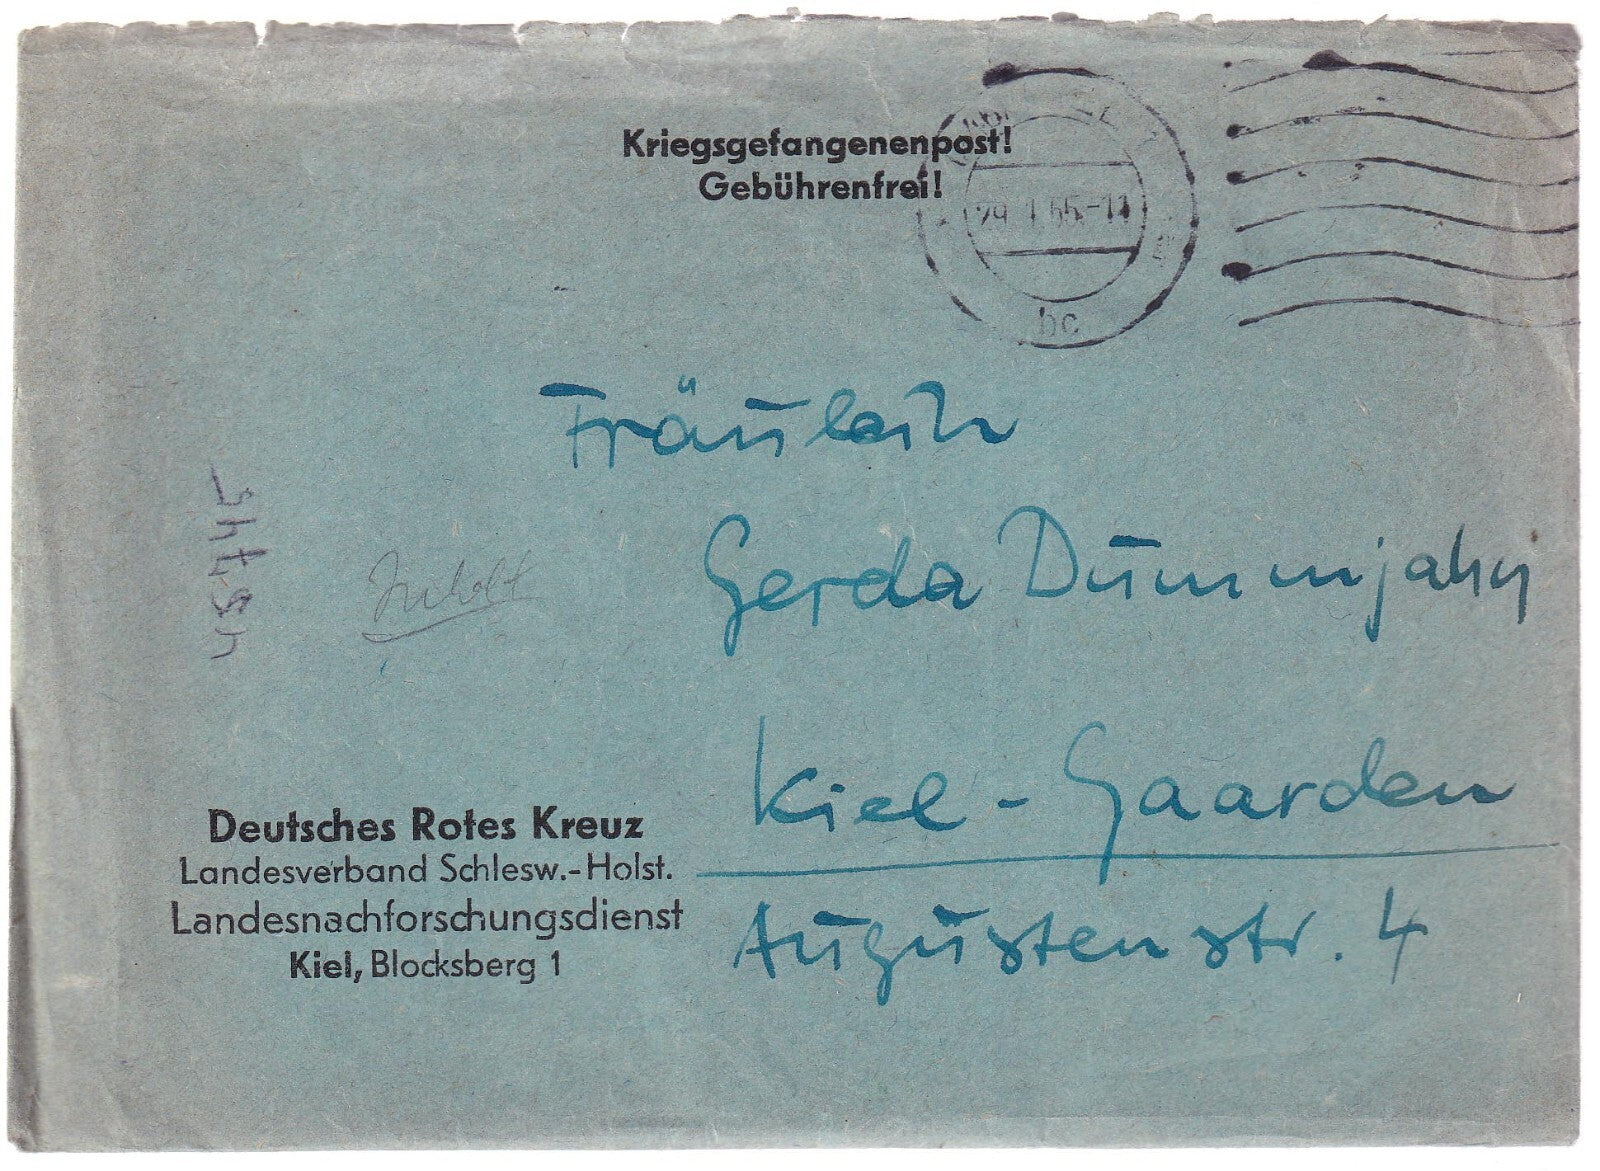 Kriegsgefangenenpost!
Gebührenfrei!
bc
Fräulein
Gerda Dummjahn
Kiel-Gaarden
Augustenstr. 4
Inhalt
Deutsches Rotes Kreuz
Landesverband Schlesw.-Holst.
Landesnachforschungsdienst
Kiel, Blocksberg 1